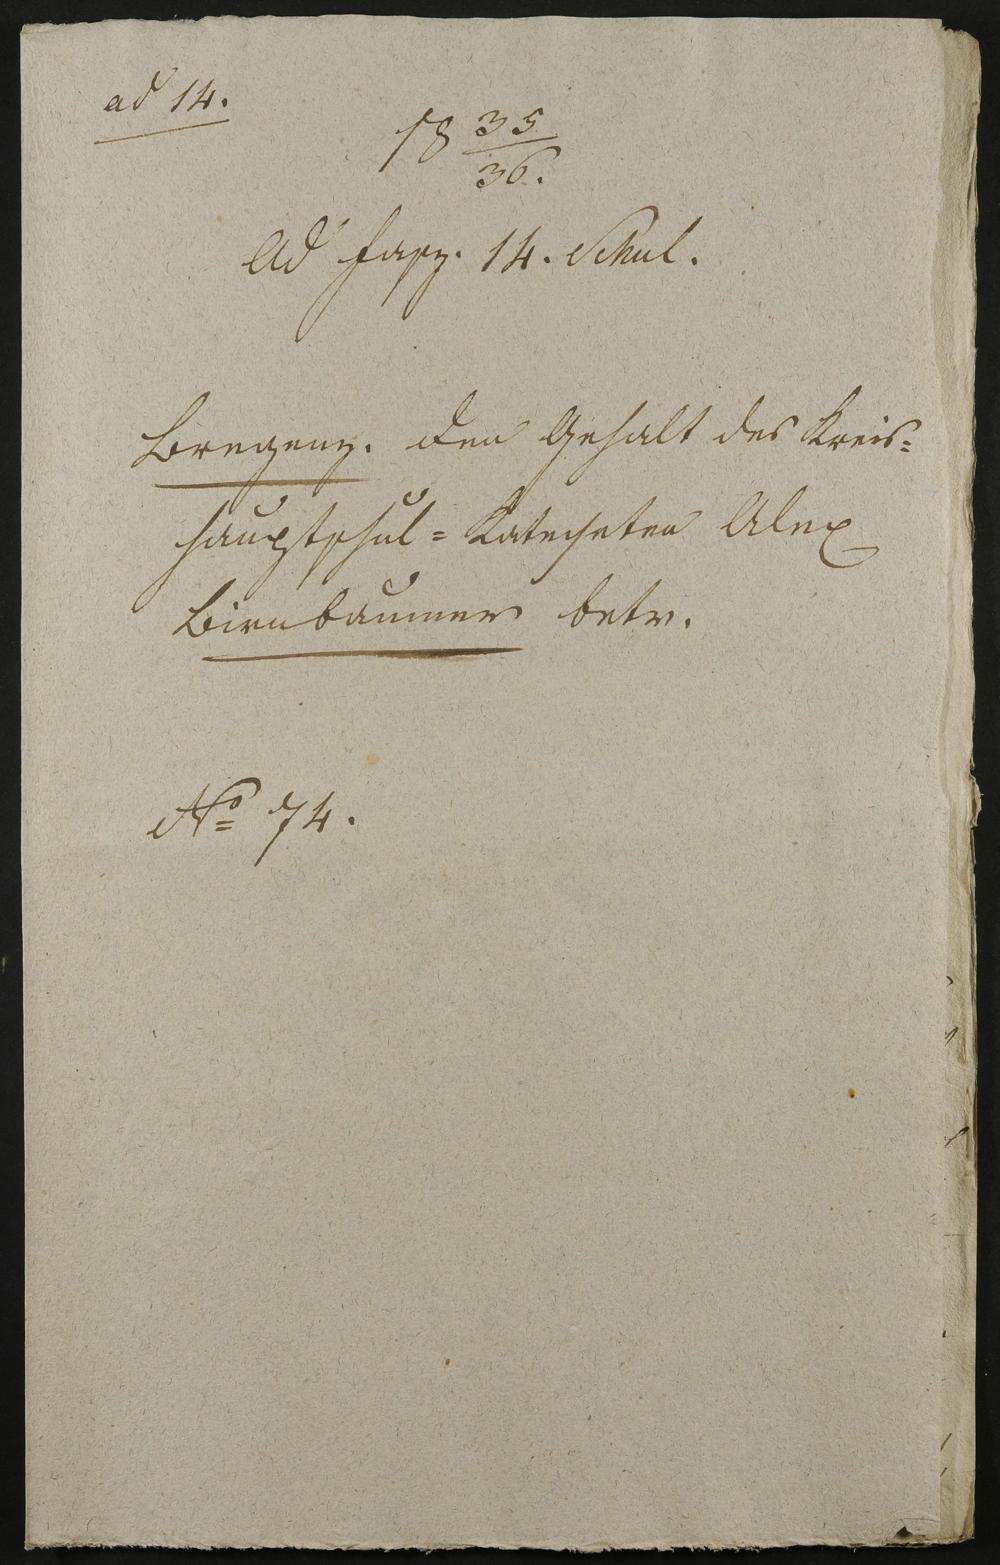 ad 14.
18 35/36.
Ad Fasz. 14. Schul.
Bregenz. Den Gehalt des Kreis=
hauptschul=Katecheten Alex
Birnbaumer betr.
No 74.